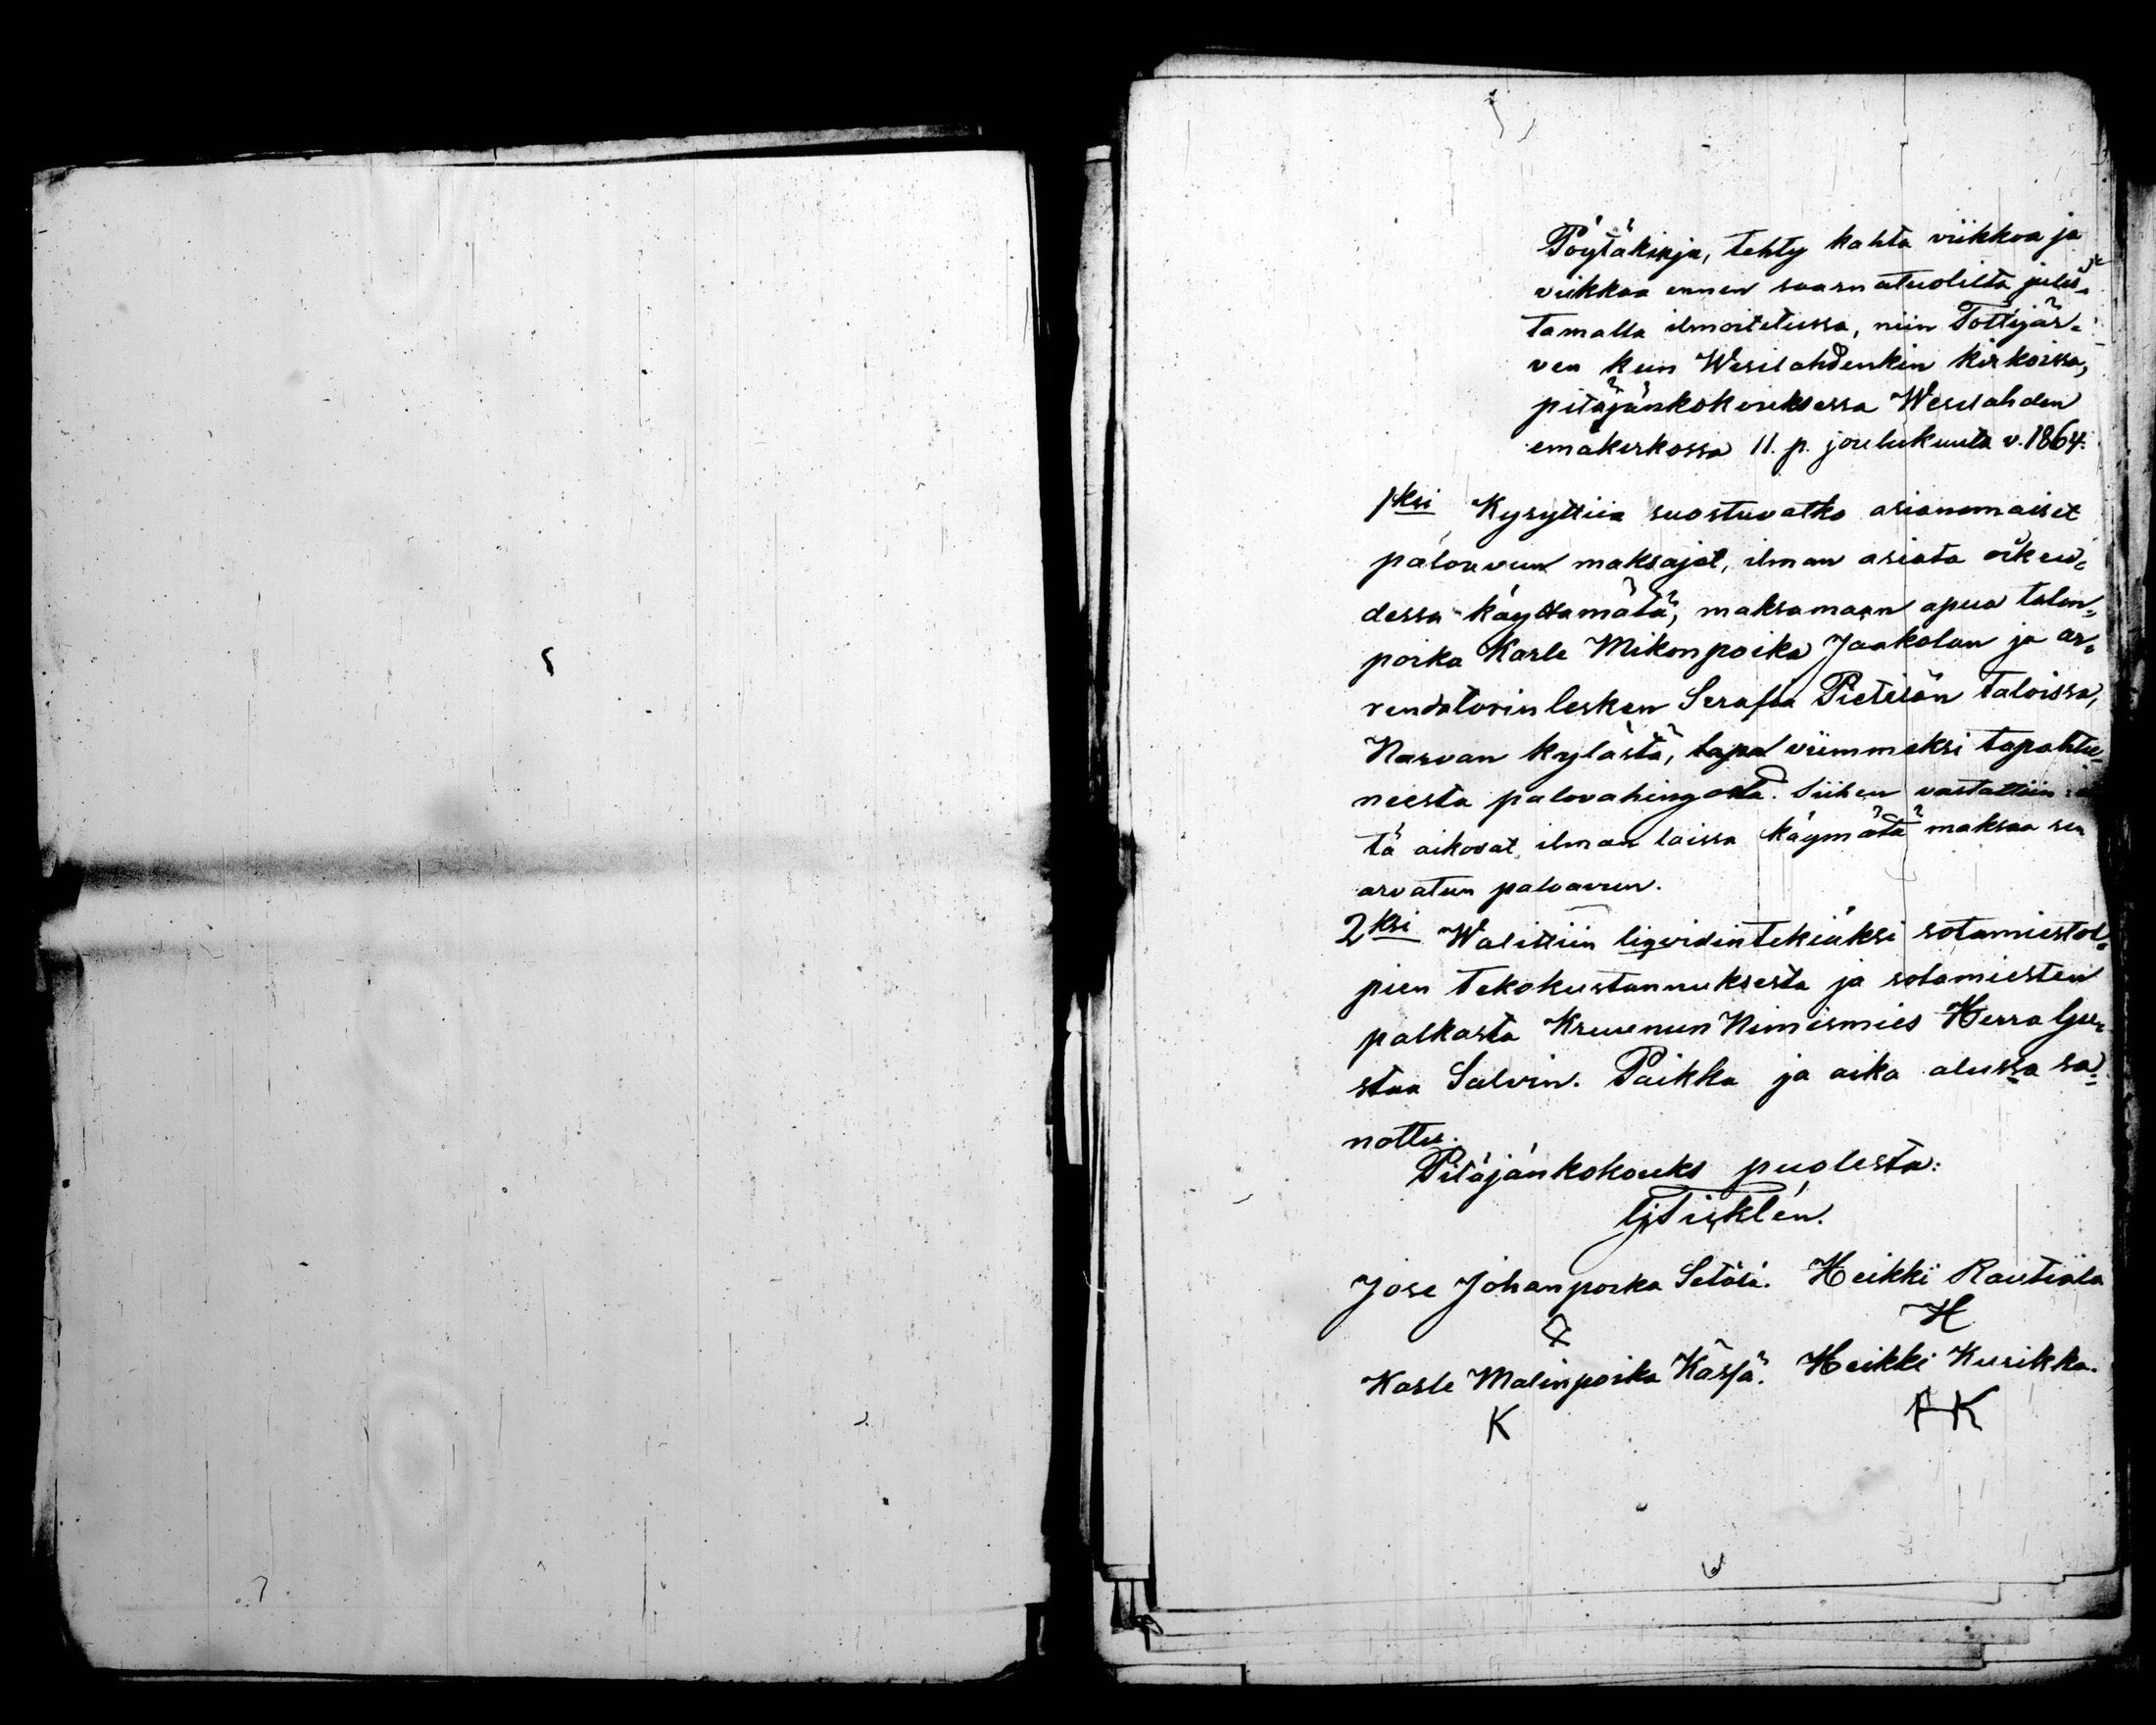 Pöytäkirja, tehty kahta viikkoa ja
viikkoa ennen saarnatuolilta julis„
tamalla ilmoitetussa, niin Tottijär„
ven kuin Wesilahdenkin kirkoissa,
pitäjänkokouksessa Wesilahden
emäkirkossa 11. p. joulukuuta v. 1864.
1ksi Kysyttiin suostuvatko asianomaiset
paloavun maksajat, ilman asiata oikeu„
dessa käyttämätä, maksamaan apua talon„
poika Karle Mikonpoika Jaakolan ja ar„
rendatorin lesken Serafia Pietilän taloissa,
Narvan kylästä, viimmeksi tapahtu„
neesta palovahingosta. Siihen vastattiin: et
tä aikovat ilman laissa käymätä maksaa sen
arvatun paloavun.
2ksi Walittiin liqvidin tekiäksi sotamiestol„
pien tekokustannuksesta ja sotamiesten
palkasta Kruunun Nimismies Herra Gu„
staa Salvin. Paikka ja aika alussa sa„
nottu.
Pitäjänkokouks puolesta:
Heikki Rautiala
Jose Johanpoika Setälä.
H
Karle Malinpoika Heikki Kurikka.
K HK